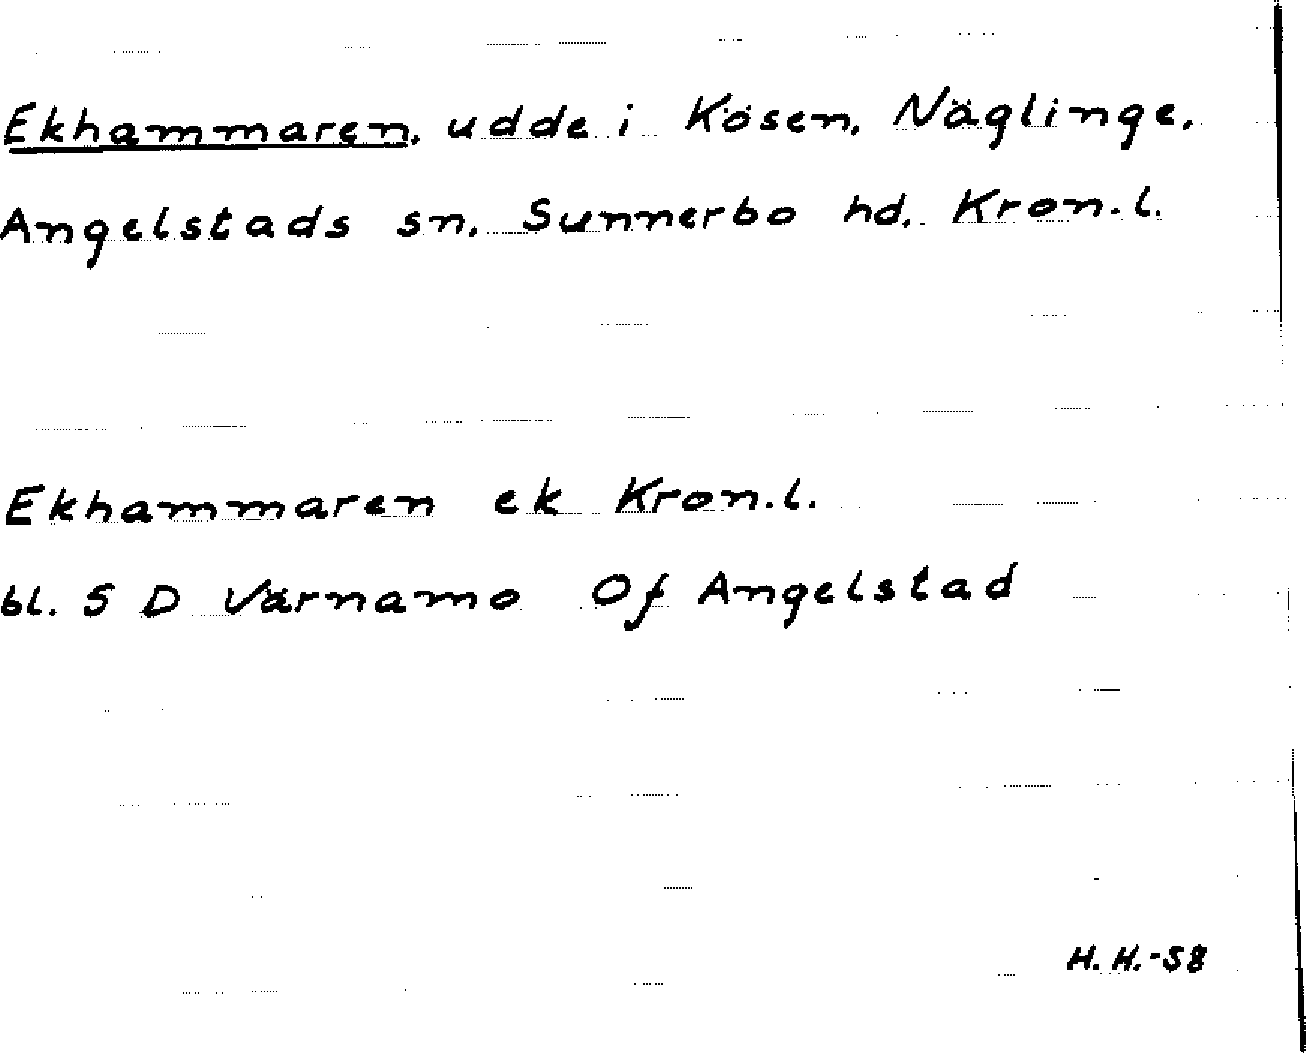 Ekhammaren, udde i Kösen, Näglinge,
Angelstads sn, Sunnerbo hd, Kron.l.
Ekhammaren ek Kron.l.
bl. 5 D Värnamo Of Angelstad
H.H.-58